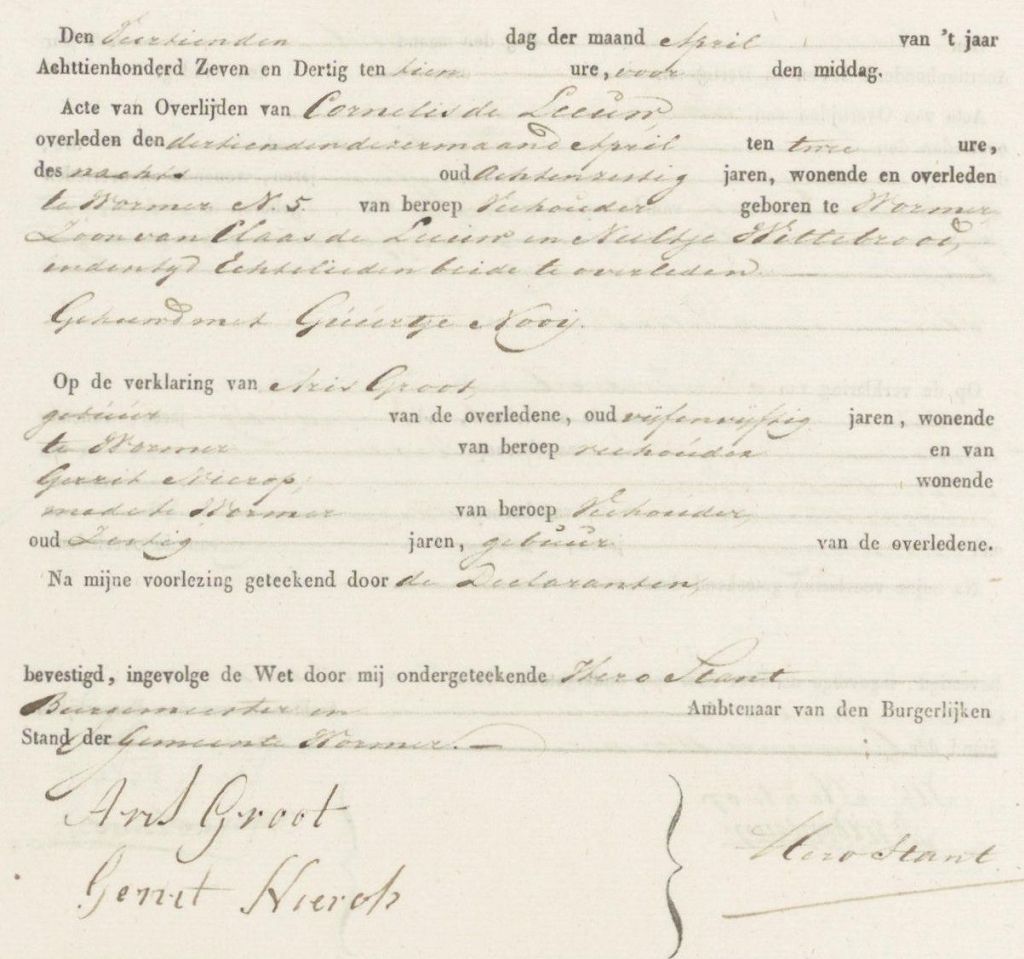 Den Veertienden dag der maand April van 't jaar
Achttienhonderd Zeven en Dertig ten tien ure, voor den middag.
Acte van Overlijden van Cornelis de Leeuw,
overleden den dertienden dezer maand April ten twee ure,
des nachts oud Achtenzestig jaren, wonende en overleden
te Wormer N. 5. van beroep Veehouder geboren te Wormer
Zoon van Claas de Leeuw en Neeltje Wittebrood,
in den tyd Echtelieden beide te overleden
Gehuwd met Guurtje Nooij.
Op de verklaring van Aris Groot,
gebuur van de overledene, oud vyfenvyftig jaren, wonende
te Wormer van beroep veehouder en van
Gerrit Nierop, wonende
mede te Wormer van beroep Veehouder,
oud Zestig jaren, gebuur van de overledene.
Na mijne voorlezing geteekend door de Declaranten,
bevestigd, ingevolge de Wet door mij ondergeteekende Hero Stant
Burgemeester en Ambtenaar van den Burgerlijken
Stand der Gemeente Wormer.
Aris Groot
Gerrit Nierop
Hero Stant